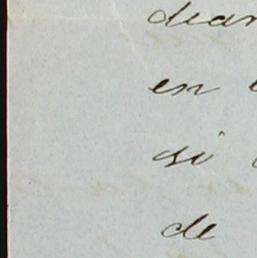 dean
en
si
de